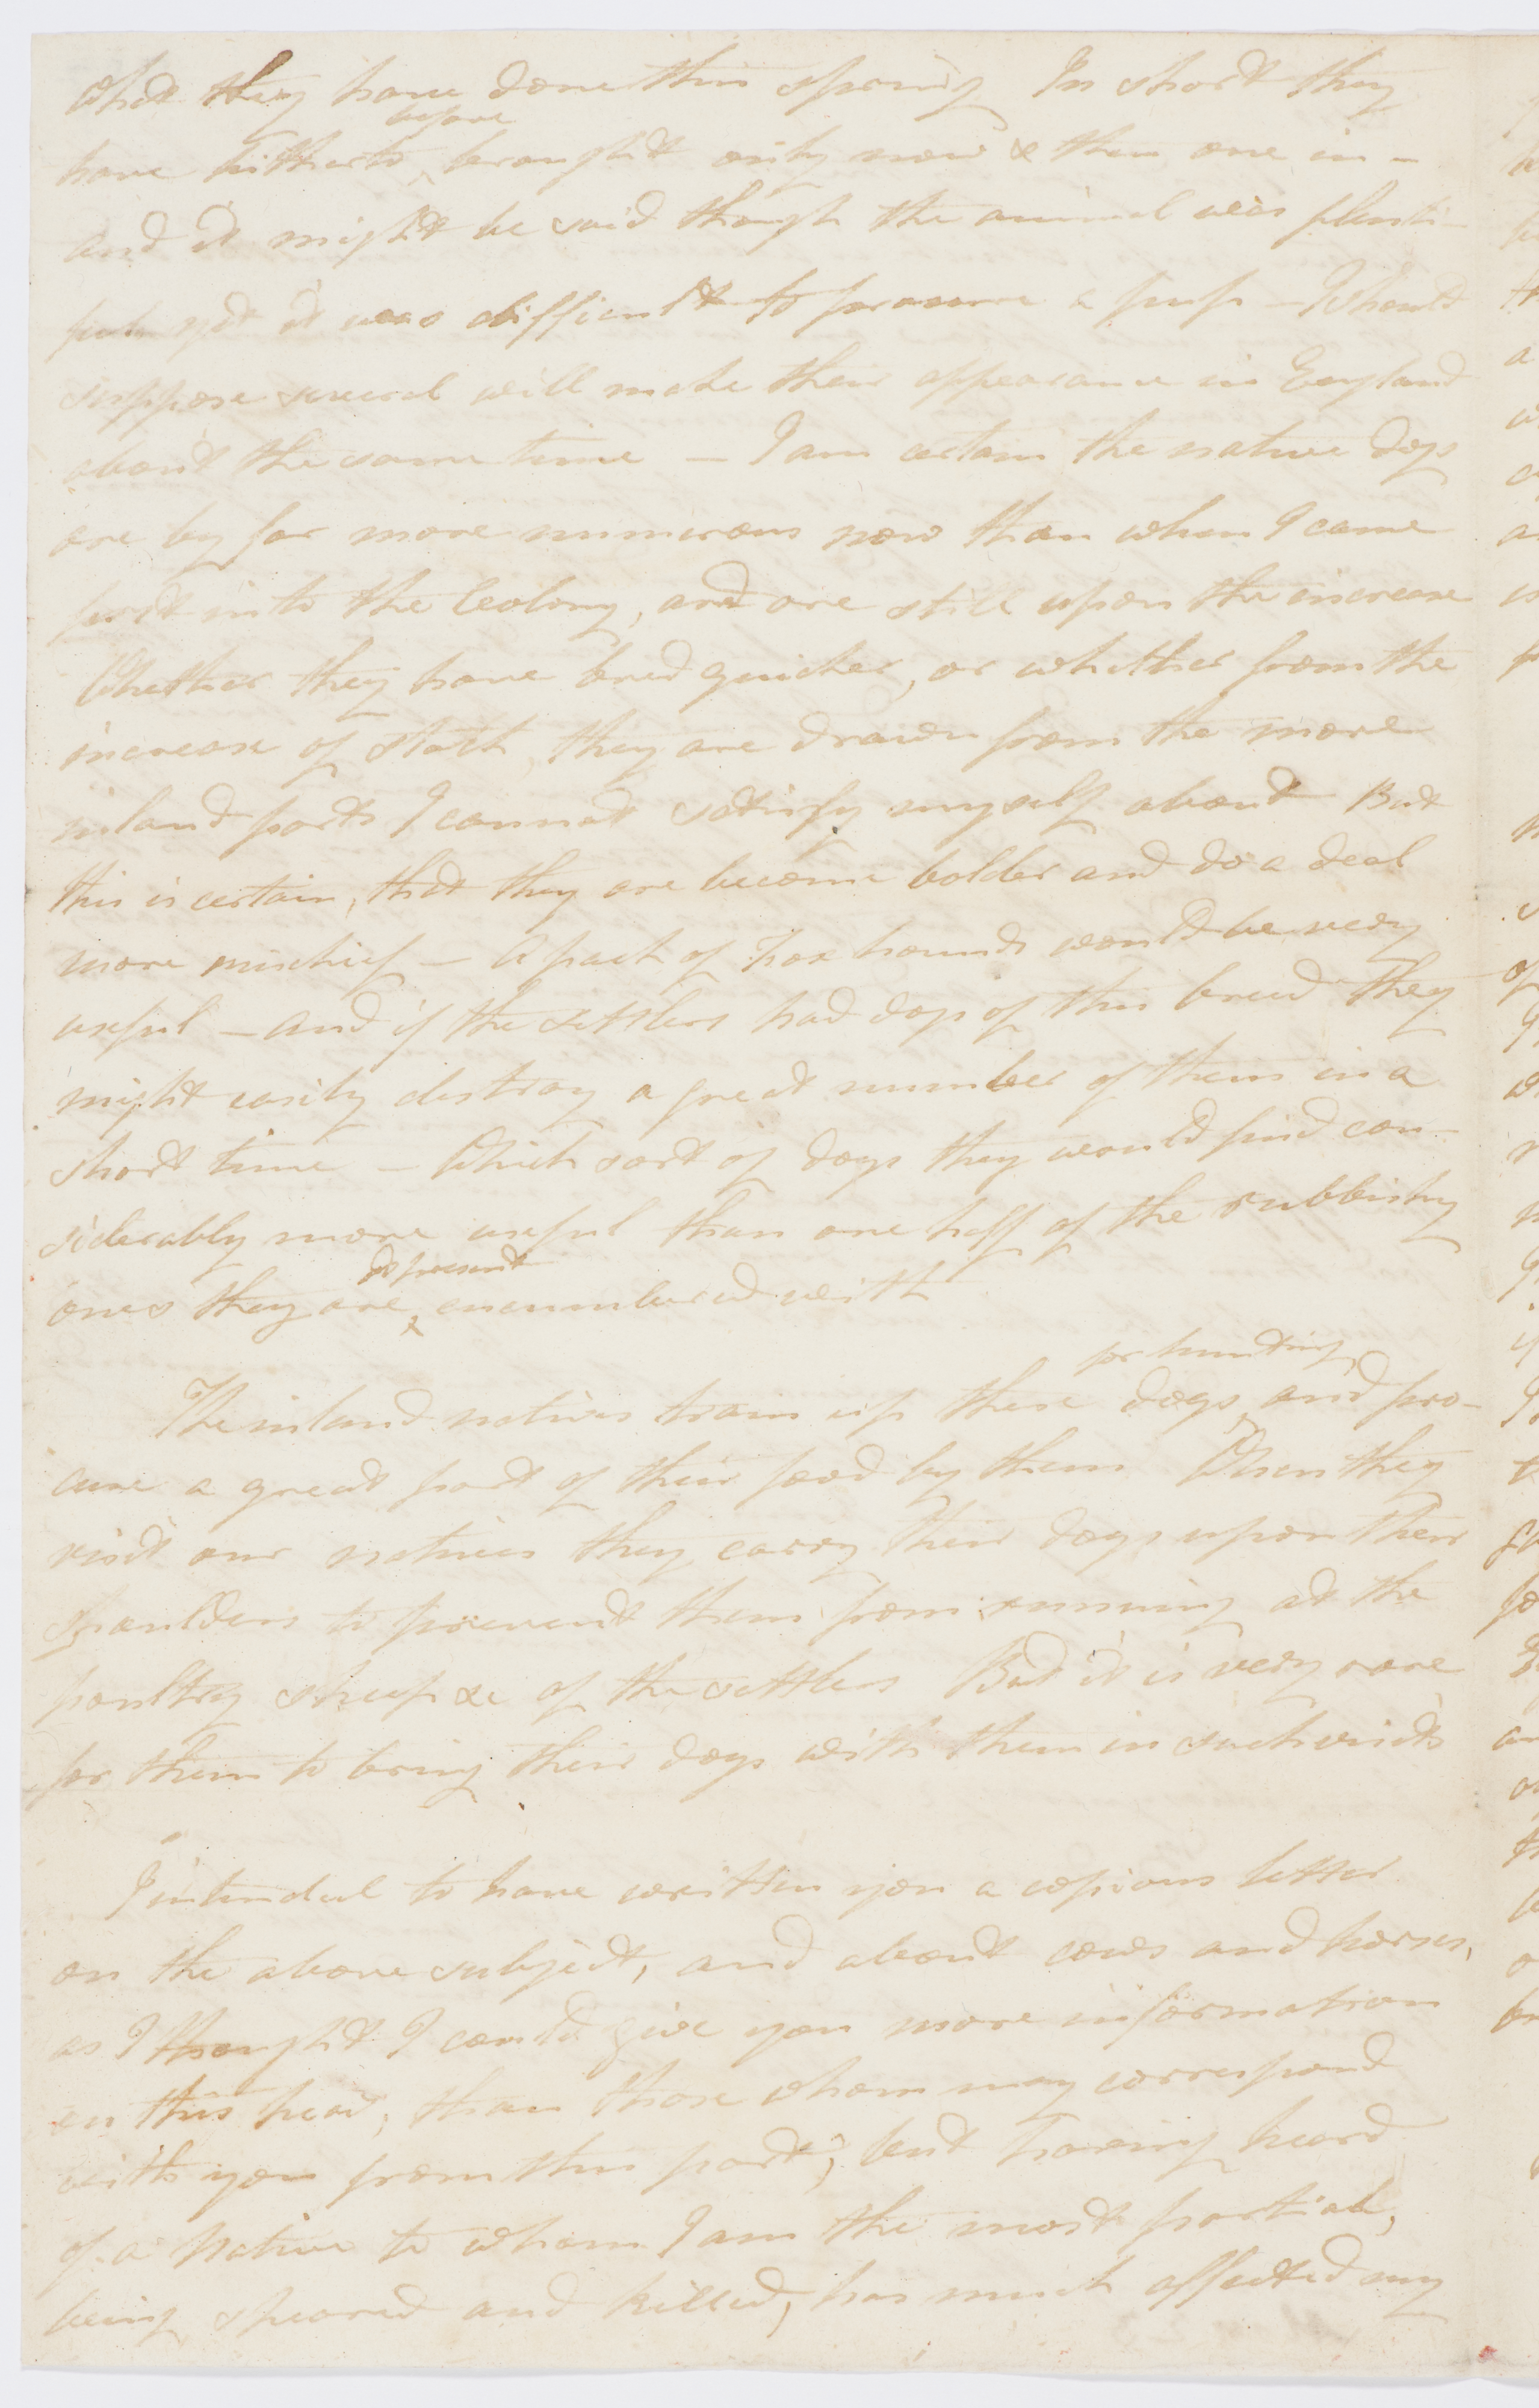 what they have done this spring In short they
before
have hitherto brought only now & then one in –
and it might be said though the animal was plenti-
full yet it was difficult to procure a pup – I should
suppose several will make their appearance in England
about the same time – I am certain the native dogs
are by far more numerous now than when I came
first into the Colony, and are still upon the increase
Whether they have bred quicker, or whether from the
increase of stock, they are drawn from the more
inland parts I cannot satisfy myself about But
this is certain, that they are become bolder and do a deal
more mischief – a pack of fox hounds would be very
useful – and if the settlers had dogs of this breed they
might easily destroy a great number of them in a
short time – Which sort of dogs they would find con-
siderably more useful than one half of the rubbishy
at present
ones they are encumbered with
for hunting,
The inland natives train up these dogs and pro-
cure a great part of their food by them When they
visit our natives they carry their dogs upon their
shoulders to prevent them from running at the
poultry sheep &c of the settlers But it is very rare
for them to bring their dogs with them in such visits
I intended to have written you a copious letter
on the above subject, and about cows and horses,
as I thought I could give you more information
on this head, than those whom may correspond
with you from this part; but having heard
of a Native to whom I am the most partial,
being speared and killed, has much affected my